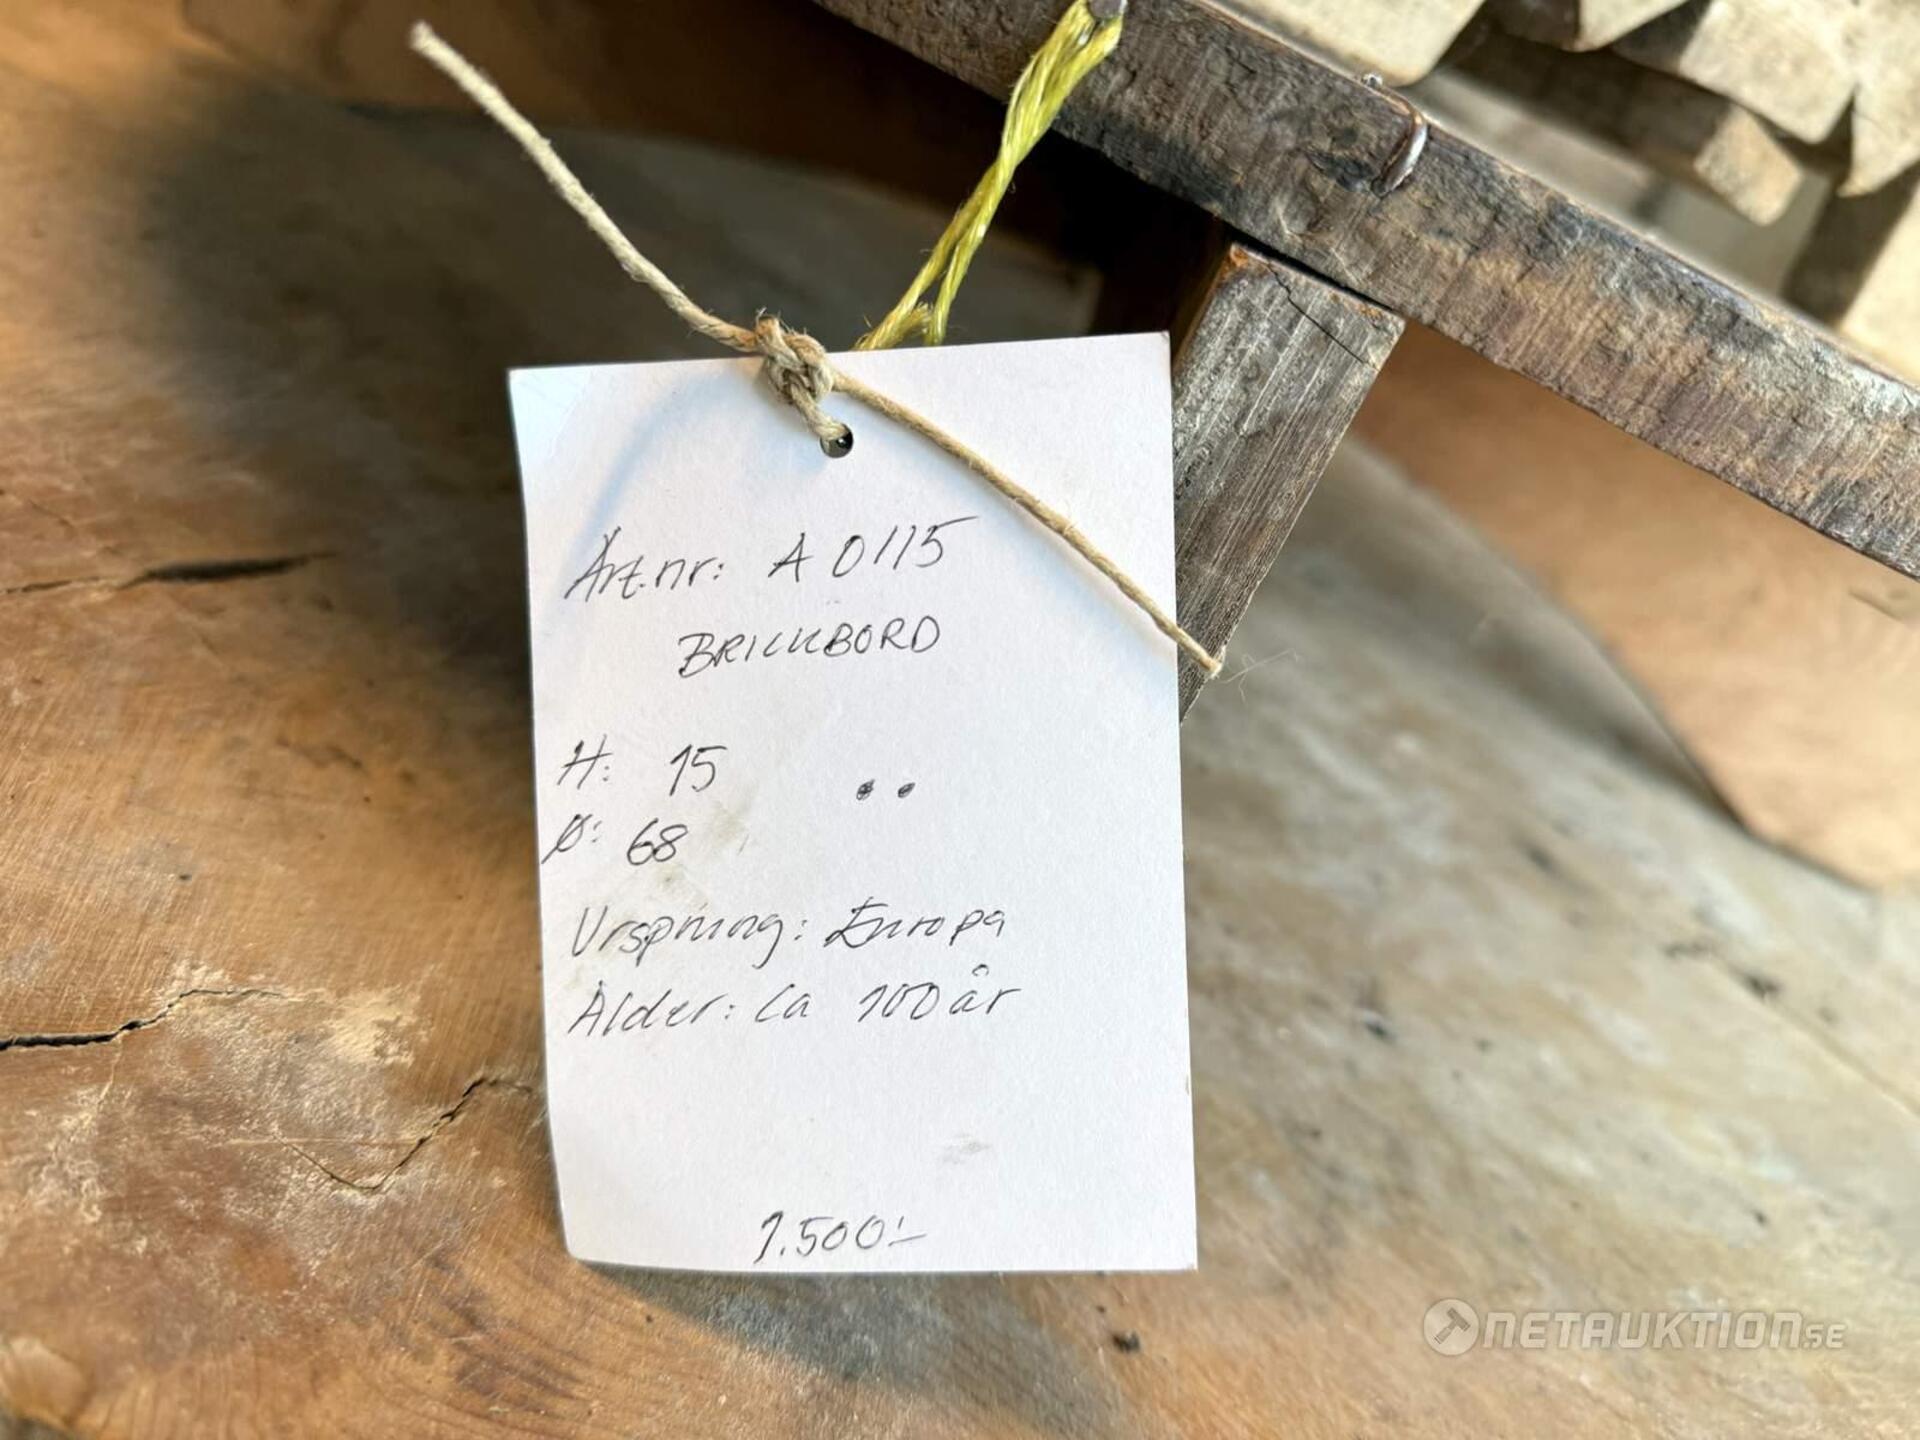 Art.nr: A 0115
BRICKBORD
H: 15
Ø: 68
Ursprung: Europa
Ålder: Ca 100 år
1.500:-
NETAUKTION.SE